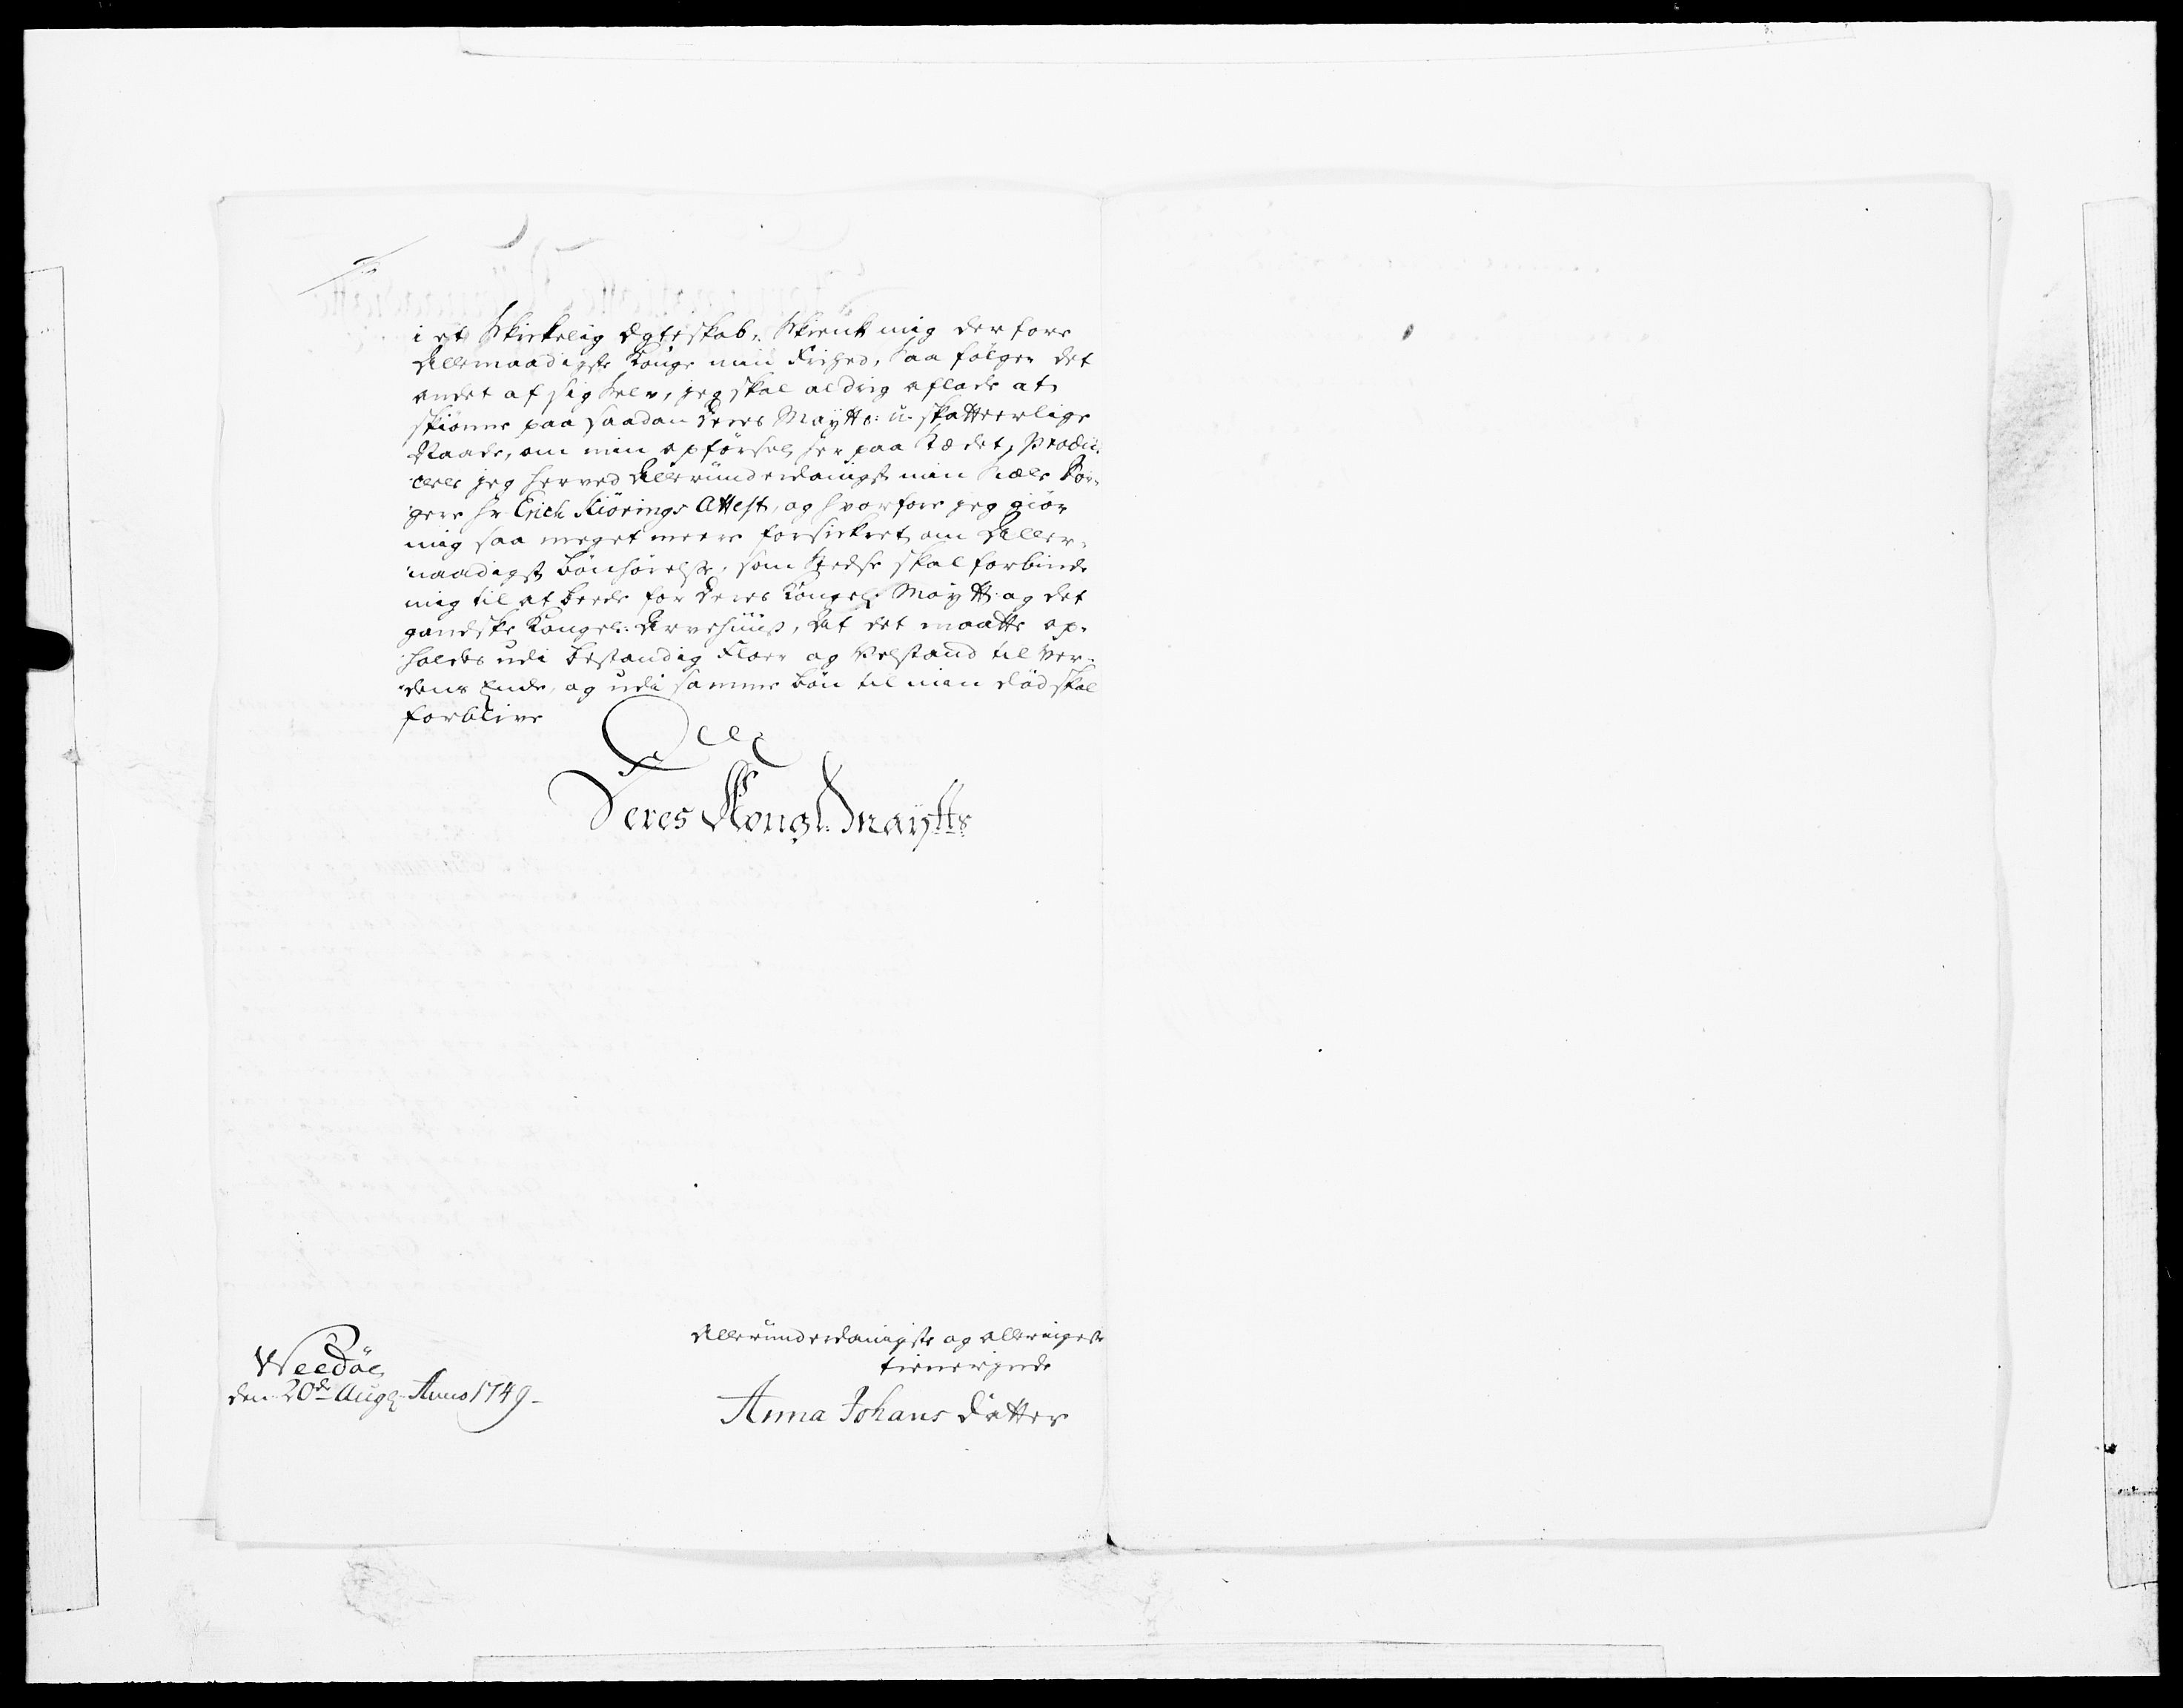 i et Skickelig Ægteskab: Skienk mig derfore
Allernaadigste Konge min Friehed, saa følger det
andet af sig selv, jeg skal aldrig aflade at
skiønne paa saadan Deres Maytts: u-skatteerlige
Naade, om min opførsel her paa Stædet, Produ-
cerer jeg herved Allerunderdanigst min Siæle Sør-
gere Hr Erich Kiörings Attest, og hvorfore jeg giør
mig saa meget meere forsickret om Aller-
naadigst Bønhørelse, som stedse skal forbinde
mig til at beede for Deres Kongel: Maytt: og det
gandske Kongel: Arvehuus, At det maatte op-
holdes udi bestandig Floer og Velstand til Ver-
dens Ende, og udi samme bøn til min død skal
forblive
Deres Kongl: Maytts
Allerunderdanigste og allerringeste
tienerinde
Weedöe
den 20de Aug: Anno 1749-
Anna Johans Datter